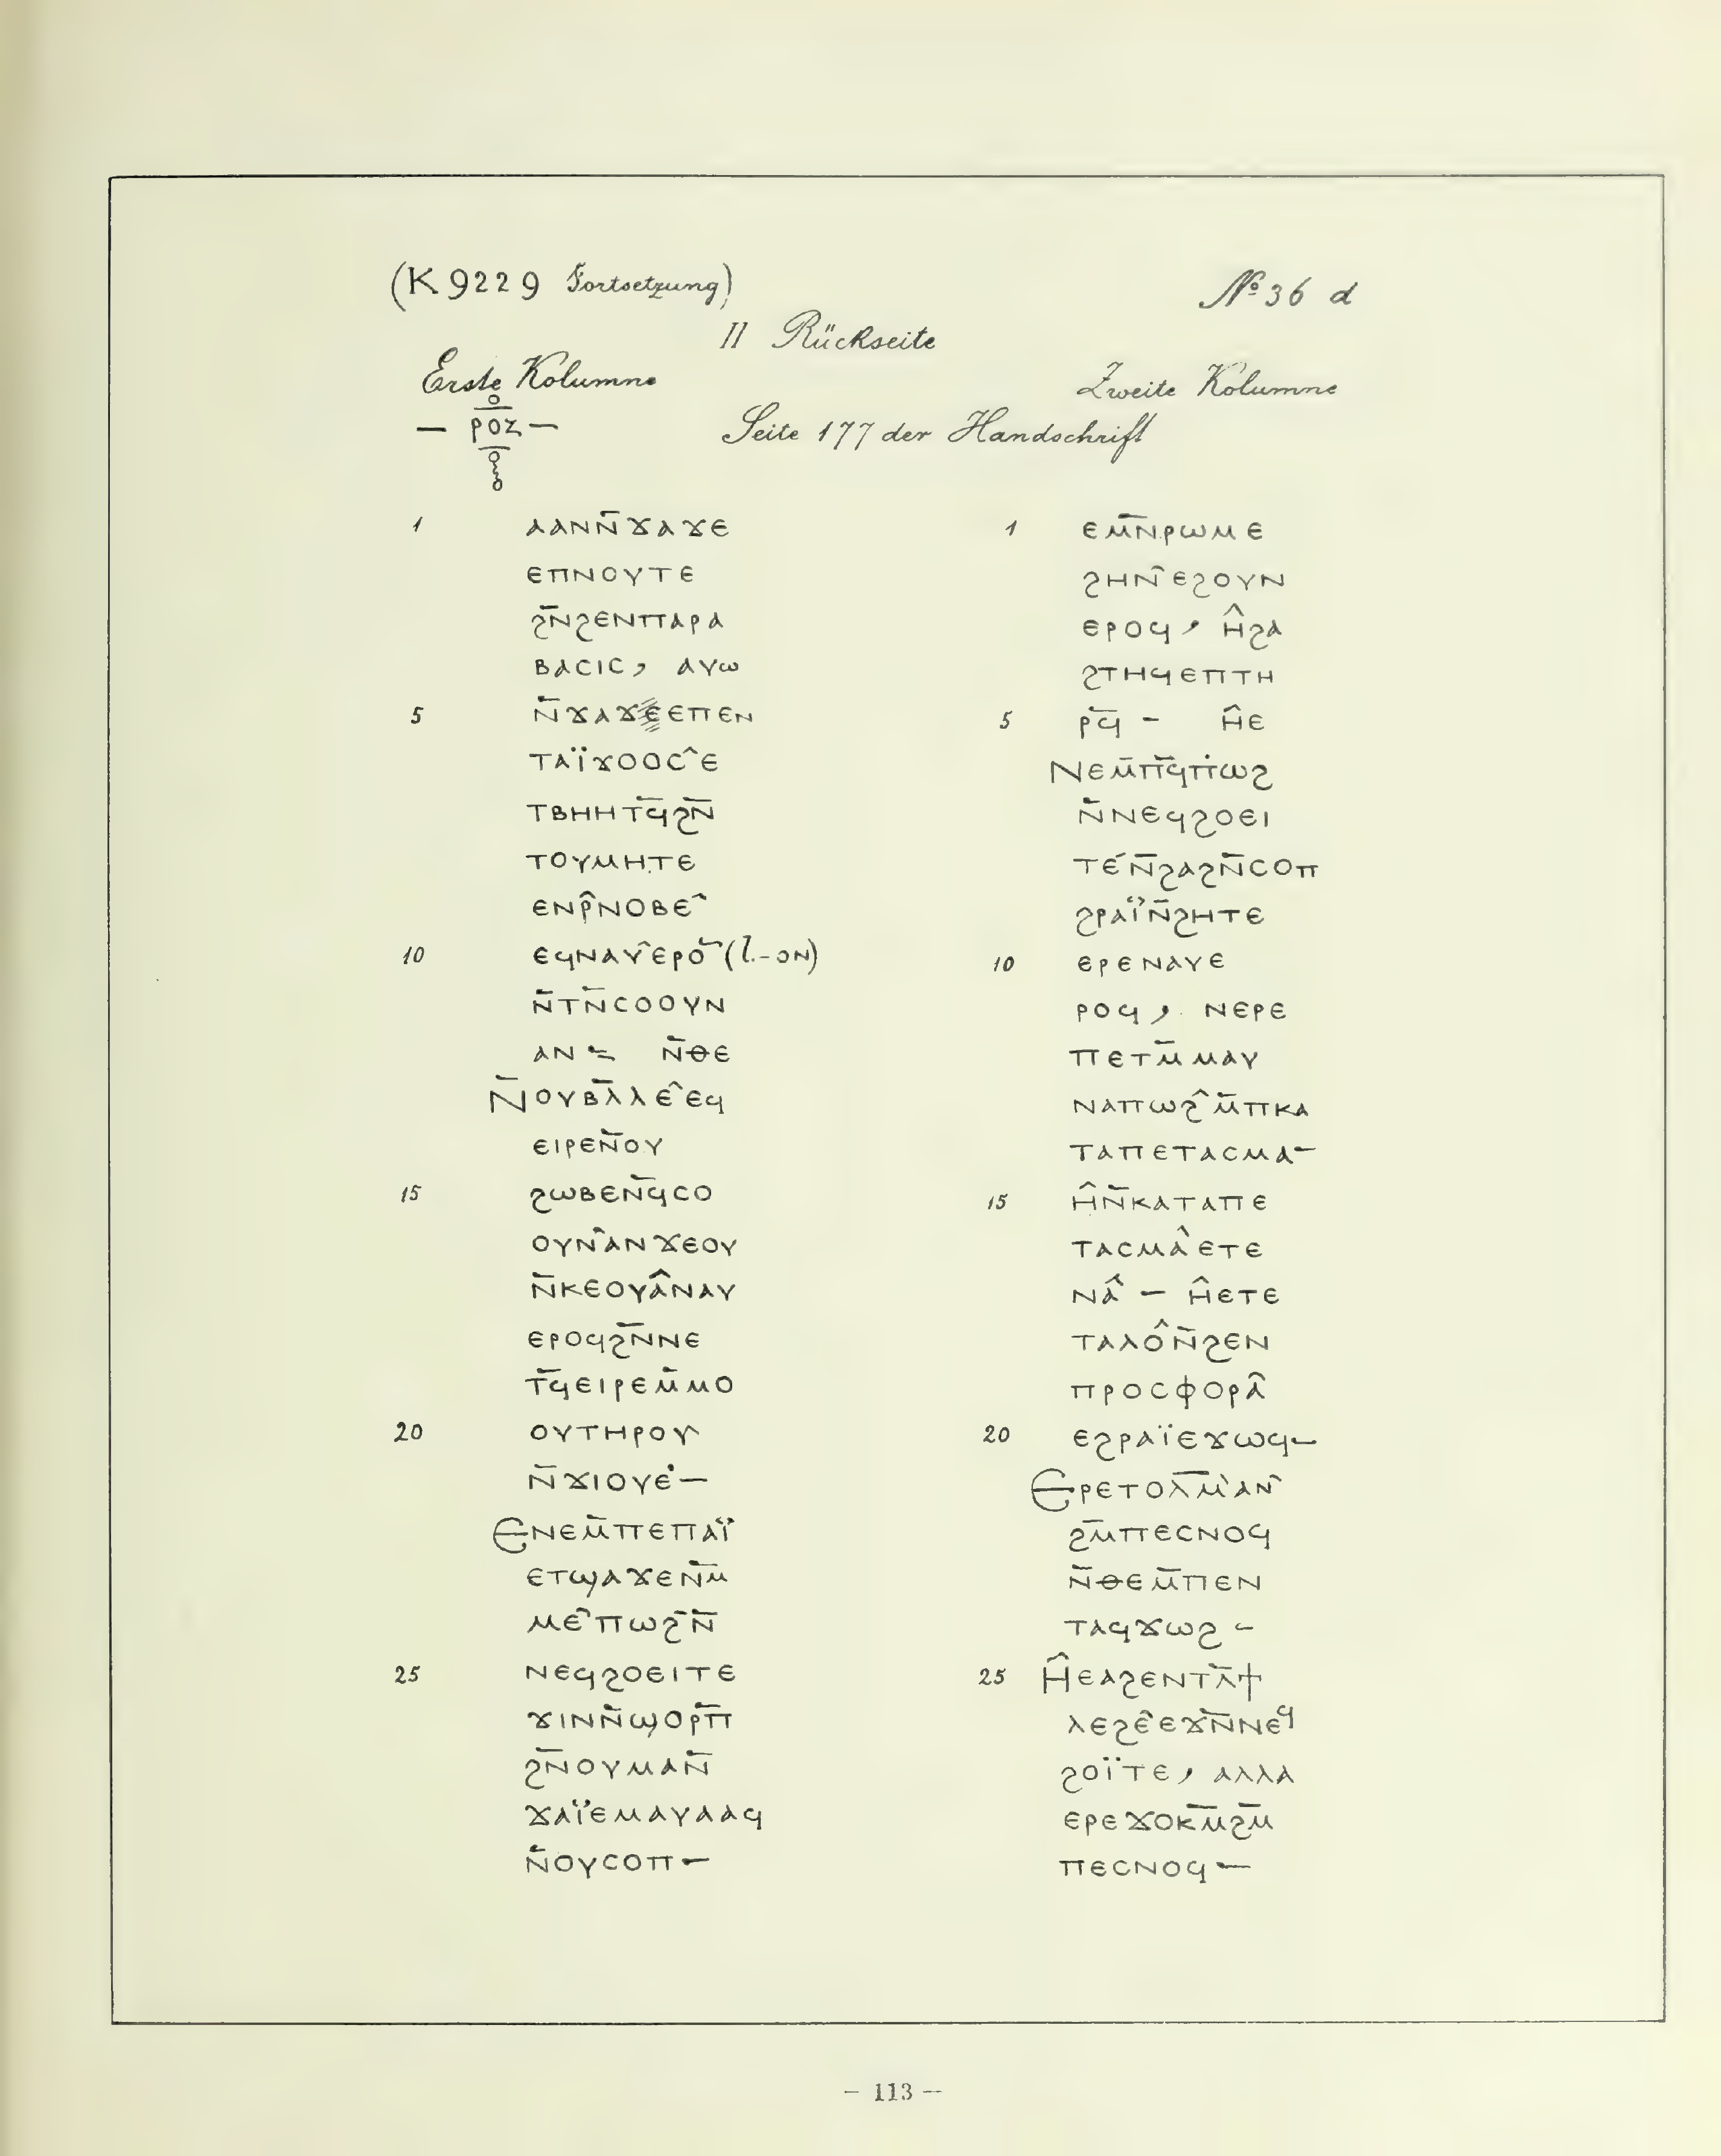 (K 9229 Fortsetzung)
№ 36 d
II Rückseite
Erste Kolumne
Zweite Kolumne
— ⲣⲟⲍ —
Seite 177 der Handschrift
1 ⲁⲁⲛⲛ̄ϫⲁϫⲉ
ⲉⲡⲛⲟⲩⲧⲉ
ϩⲛ̄ϩⲉⲛⲡⲁⲣⲁ
ⲃⲁⲥⲓⲥ, ⲁⲩⲱ
5 ⲛ̄ϫⲁϫⲉⲉⲡⲉⲛ
ⲧⲁⲓ̈ϫⲟⲟⲥ̂ⲉ
ⲧⲃⲏⲏⲧϥ̄ϩⲛ̄
ⲧⲟⲩⲙⲏⲧⲉ
ⲉⲛⲣ̂ⲛⲟⲃⲉ̂
10 ⲉϥⲛⲁⲩ̂ⲉⲣⲟ̄ (l. -ⲟⲛ)
ⲛ̄ⲧⲛ̄ⲥⲟⲟⲩⲛ
ⲁⲛ ⹀ ⲛ̄ⲑⲉ
ⲛ̄ⲟⲩⲃⲗ̄ⲗⲉ̂ⲉϥ
ⲉⲓⲣⲉⲛ̄ⲟⲩ
15 ϩⲱⲃⲉⲛϥ̄ⲥⲟ
ⲟⲩⲛ̂ⲁⲛϫⲉⲟⲩ
ⲛ̄ⲕⲉⲟⲩⲁ̂ⲛⲁⲩ
ⲉⲣⲟϥϩⲛ̄ⲛⲉ
ⲧϥ̄ⲉⲓⲣⲉⲙ̄ⲙⲟ
20 ⲟⲩⲧⲏⲣⲟⲩ
ⲛ̄ϫⲓⲟⲩⲉ̇ —
Ⲉⲛⲉⲙ̄ⲡⲉⲡⲁⲓ̈
ⲉⲧϣⲁϫⲉⲛⲙ̄
ⲙⲉ̂ⲡⲱϩ̄ⲛ̄
25 ⲛⲉϥϩⲟⲉⲓⲧⲉ
ϫⲓⲛⲛ̄ϣⲟⲣⲡ̄
ϩⲛ̄ⲟⲩⲙⲁⲛ̄
ϫⲁⲓ̈ⲉⲙⲁⲩⲁⲁϥ
ⲛ̄ⲟⲩⲥⲟⲡ —
1 ⲉⲙⲛ̄ⲣⲱⲙⲉ
ϩⲏⲛ̂ⲉϩⲟⲩⲛ
ⲉⲣⲟϥ, ⲏ̂ϩⲁ
ϩⲧⲏϥⲉⲡⲧⲏ
5 ⲣϥ̄ – ⲏ̂ⲉ
Ⲛⲉⲙ̄ⲡϥ̄ⲡ̇ⲱϩ
ⲛ̄ⲛⲉϥϩⲟⲉⲓ
ⲧⲉ́ⲛ̄ϩⲁϩⲛ̄ⲥⲟⲡ
ϩⲣⲁⲓ̈ⲛ̄ϩⲏⲧⲉ
10 ⲉⲣⲉⲛⲁⲩⲉ
ⲣⲟϥ, ⲛⲉⲣⲉ
ⲡⲉⲧⲙ̄ⲙⲁⲩ
ⲛⲁⲡⲱϩ̂ⲙ̄ⲡⲕⲁ
ⲧⲁⲡⲉⲧⲁⲥⲙⲁ –
15 ⲏ̂ⲛ̄ⲕⲁⲧⲁⲡⲉ
ⲧⲁⲥⲙⲁ̂ⲉⲧⲉ
ⲛⲁ̂ – ⲏ̂ⲉⲧⲉ
ⲧⲁⲗⲟ̂ⲛ̄ϩⲉⲛ
ⲡⲣⲟⲥⲫⲟⲣⲁ̂
20 ⲉϩⲣⲁⲓ̈ⲉϫⲱϥ –
Ⲉⲣⲉⲧⲟⲗⲙ̄̀ⲁⲛ̂
ϩⲙ̄ⲡⲉⲥⲛⲟϥ
ⲛ̄ⲑⲉⲙ̄ⲡⲉⲛ
ⲧⲁϥϫⲱϩ –
25 Ⲏ̂ⲉⲁϩⲉⲛⲧⲗ̄ϯ
ⲗⲉϩⲉ̂ⲉϫⲛ̄ⲛⲉϥ
ϩⲟⲓ̈ⲧⲉ, ⲁⲗⲗⲁ
ⲉⲣⲉϫⲟⲕⲙ̄ϩⲙ̄
ⲡⲉⲥⲛⲟϥ –
– 113 –